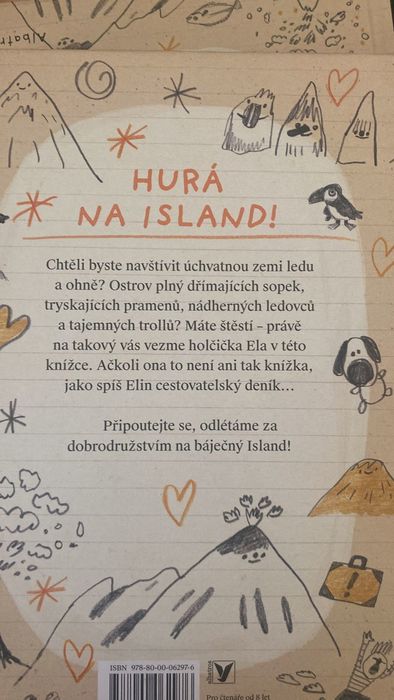 Albatr
HURÁ
NA ISLAND!
Chtěli byste navštívit úchvatnou zemi ledu
a ohně? Ostrov plný dřímajících sopek,
tryskajících pramenů, nádherných ledovců
a tajemných trollů? Máte štěstí – právě
na takový vás vezme holčička Ela v této
knížce. Ačkoli ona to není ani tak knížka,
jako spíš Elin cestovatelský deník...
Připoutejte se, odlétáme za
dobrodružstvím na báječný Island!
ISBN 978-80-00-06297-6
albatros
Pro čtenáře od 8 let